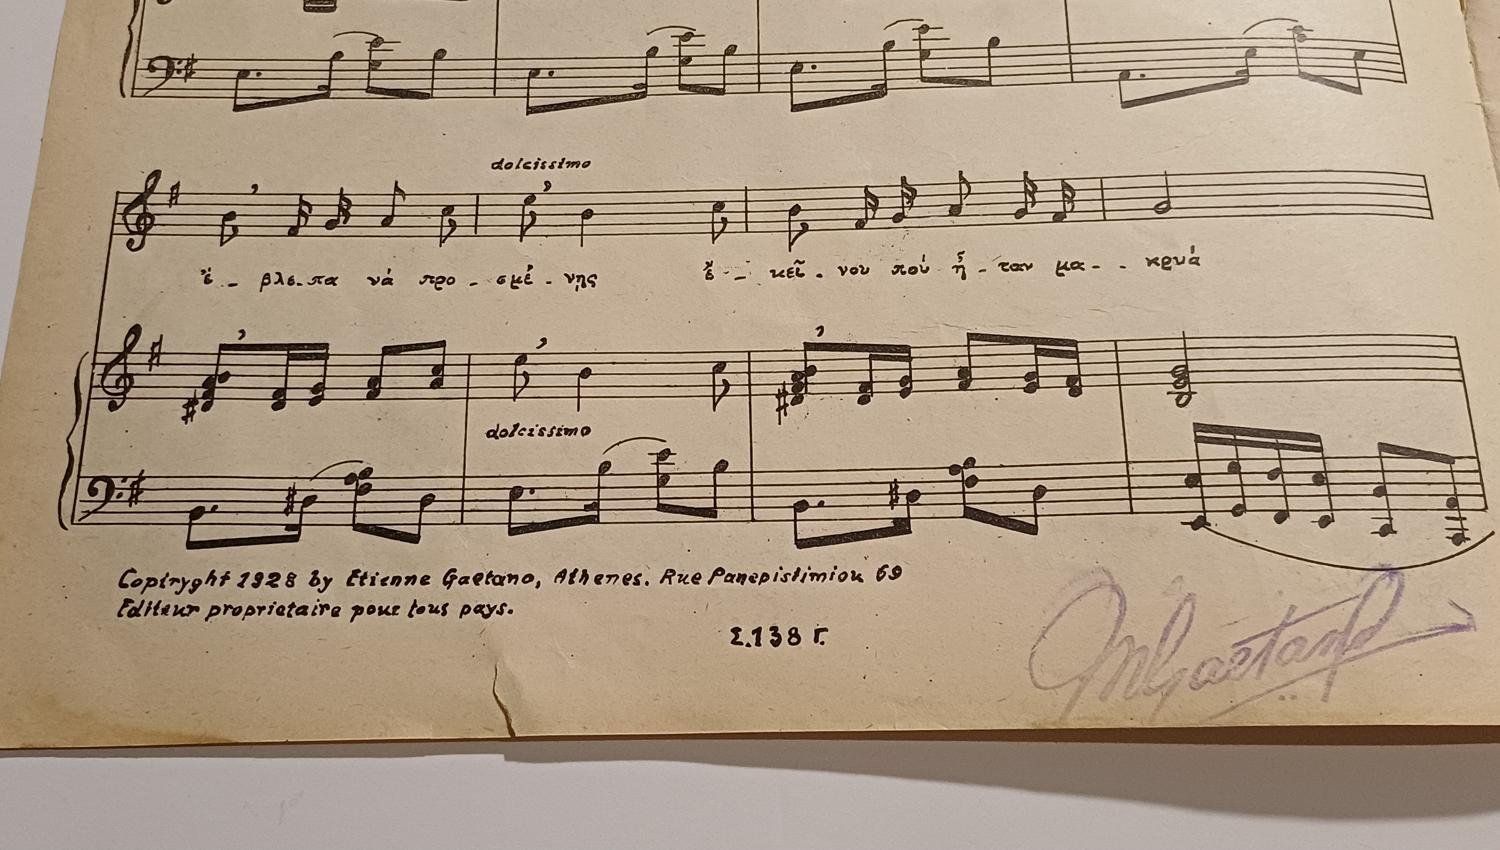 dolcissimo
ἔ - βλε - πα νά προ - σμέ - νῃς ἔ - κεῖ - νον πού ἦ - ταν μα - κρυά
dolcissimo
Coptryght 1928 by Etienne Gaetano, Athenes. Rue Panepistimiou 69
Editeur proprietaire pour tous pays.
Σ.138 Γ.
Gaetano